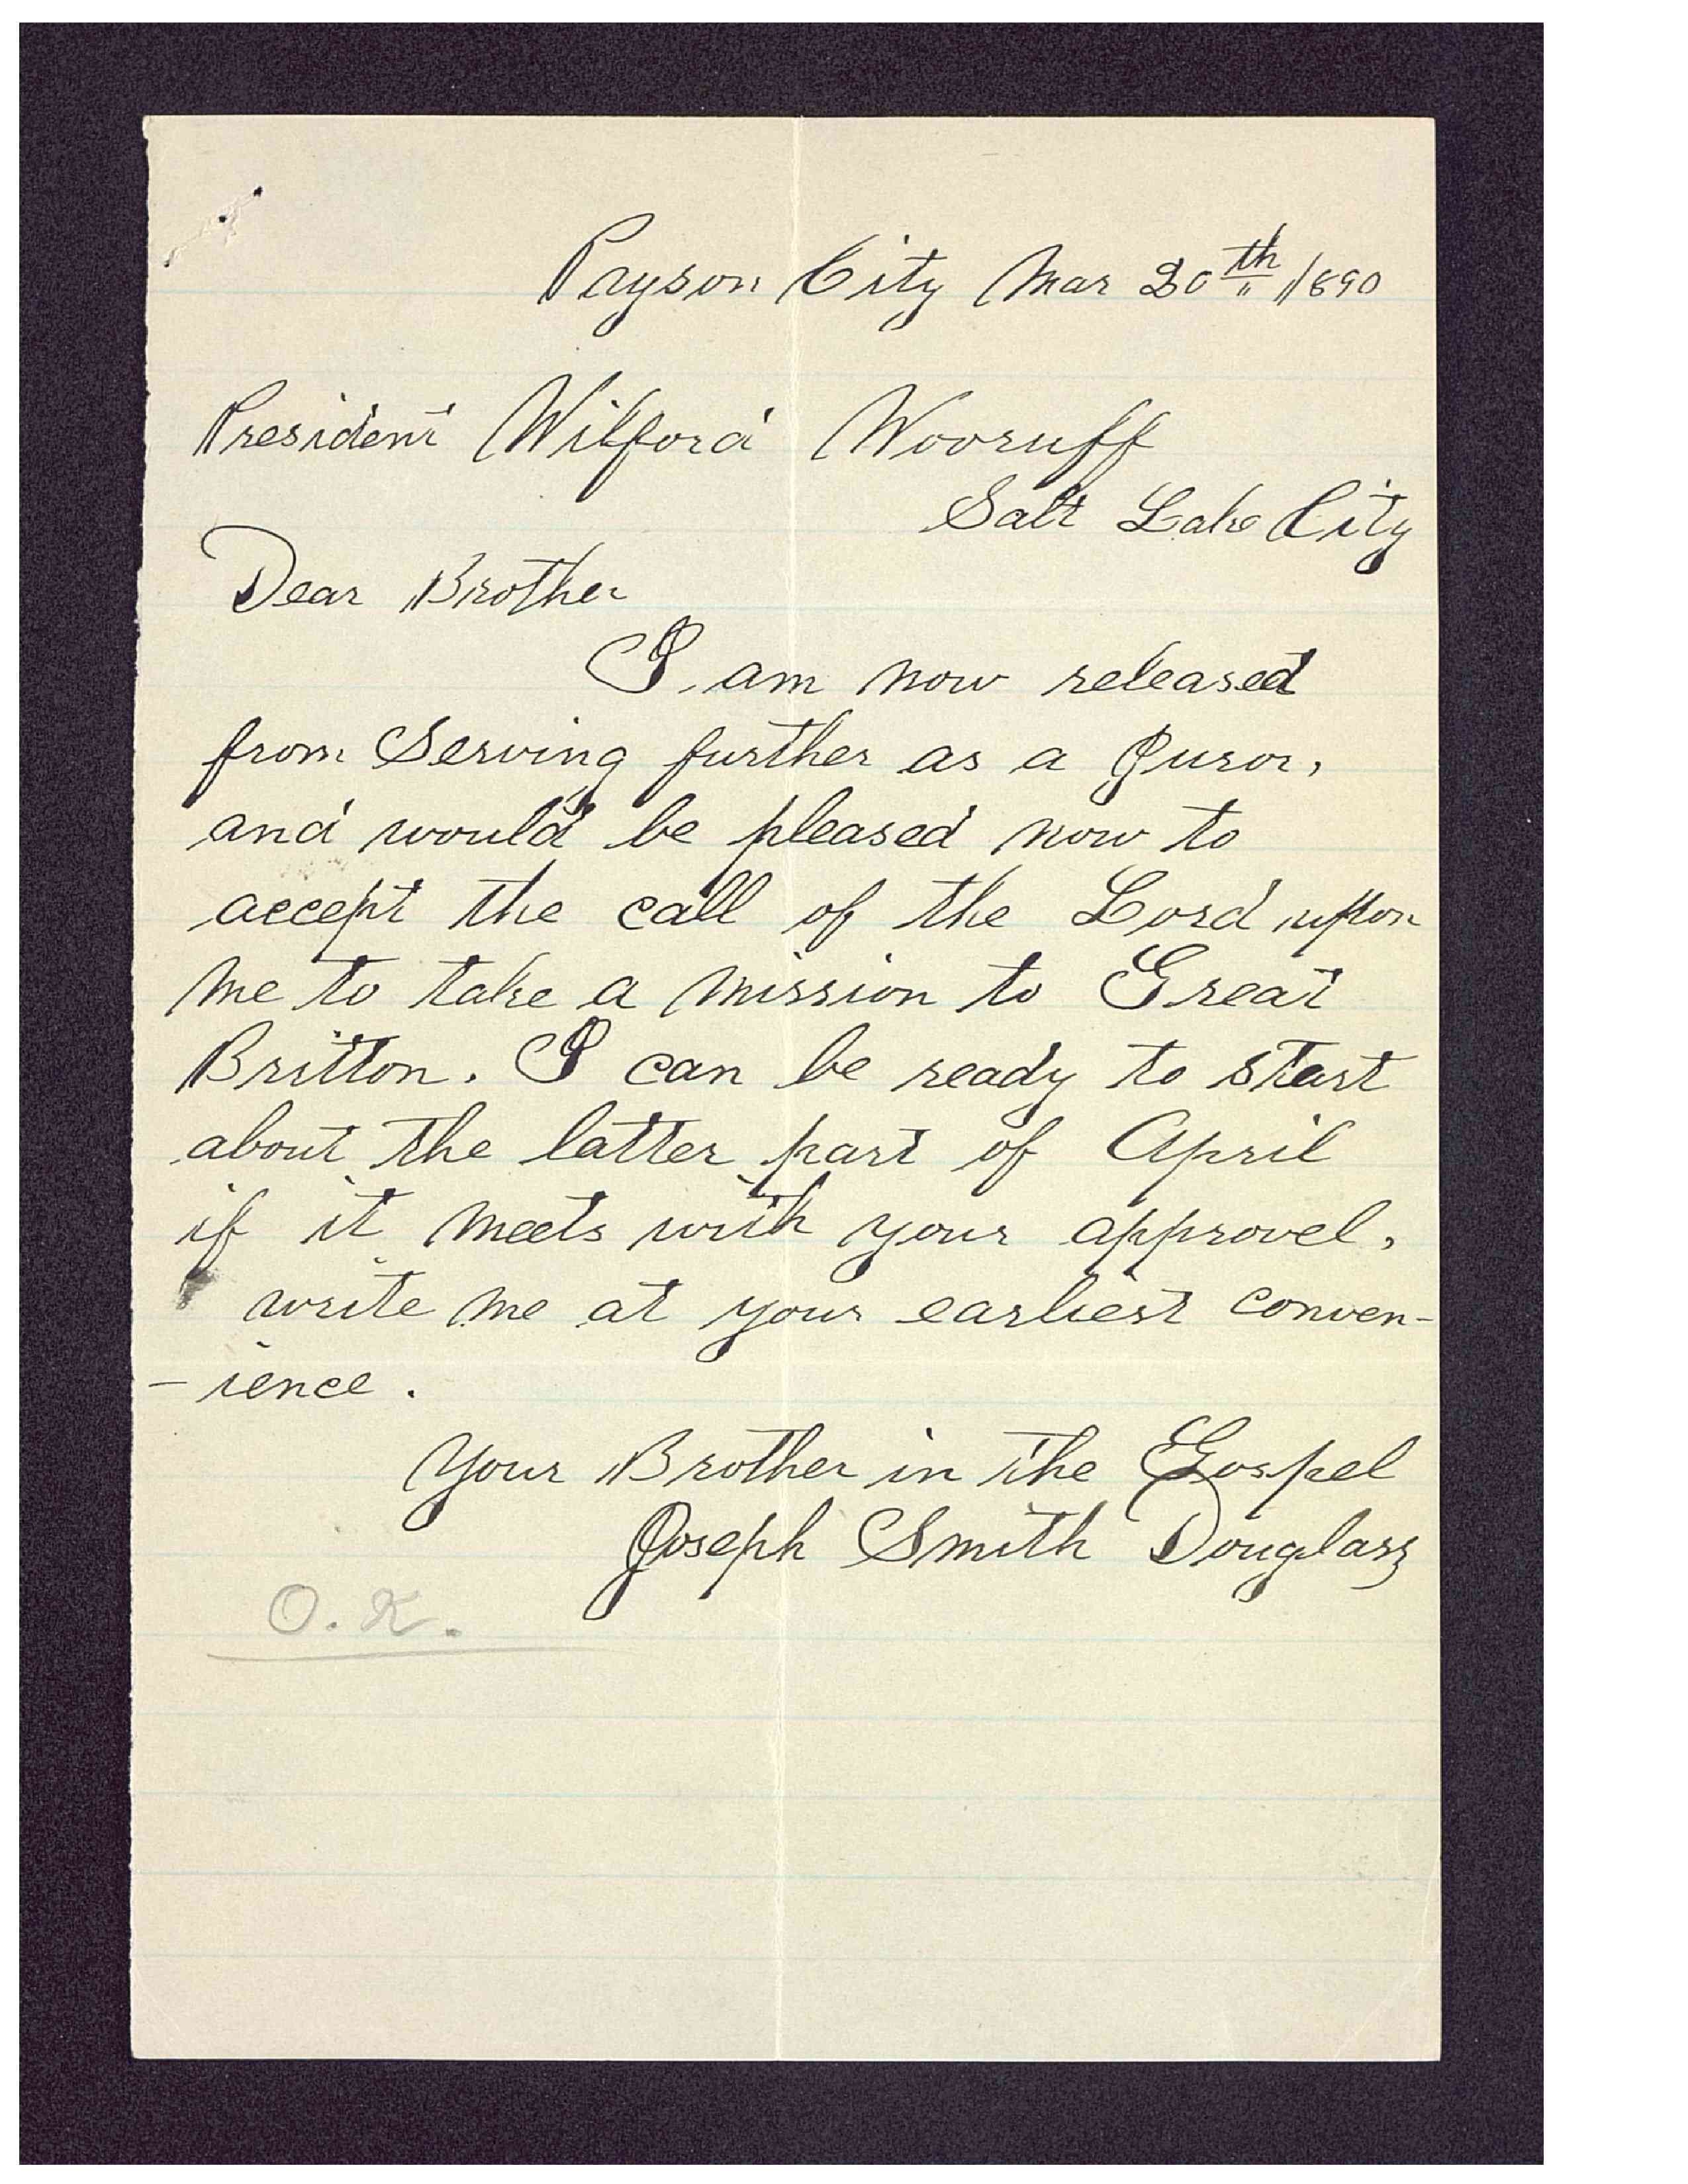 Payson City Mar 20th 1890
President Wilford Wooruff
Salt Lake City
Dear Brother
I am now released
from Serving further as a Juror,
and would be pleased now to
accept the call of the Lord upon
me to take a mission to Great
Britton. I can be ready to start
about the latter part of April
if it meets with your approvel,
write me at your earliest conven-
-ience.
Your Brother in the Gospel
Joseph Smith Douglass
O.K.